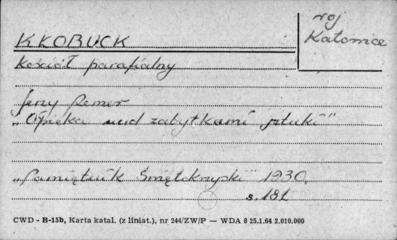 woj
Katowice
KŁOBUCK
Kościół parafialny
Jerzy Remer
"Opieka nad zabytkami sztuki"
"Pamiętnik Świętokrzyski" 1930.
s. 181
CWD - B-15b, Karta katal. (z liniat.), nr 244/ZW/P — WDA 8 25.1.64 2.010.000